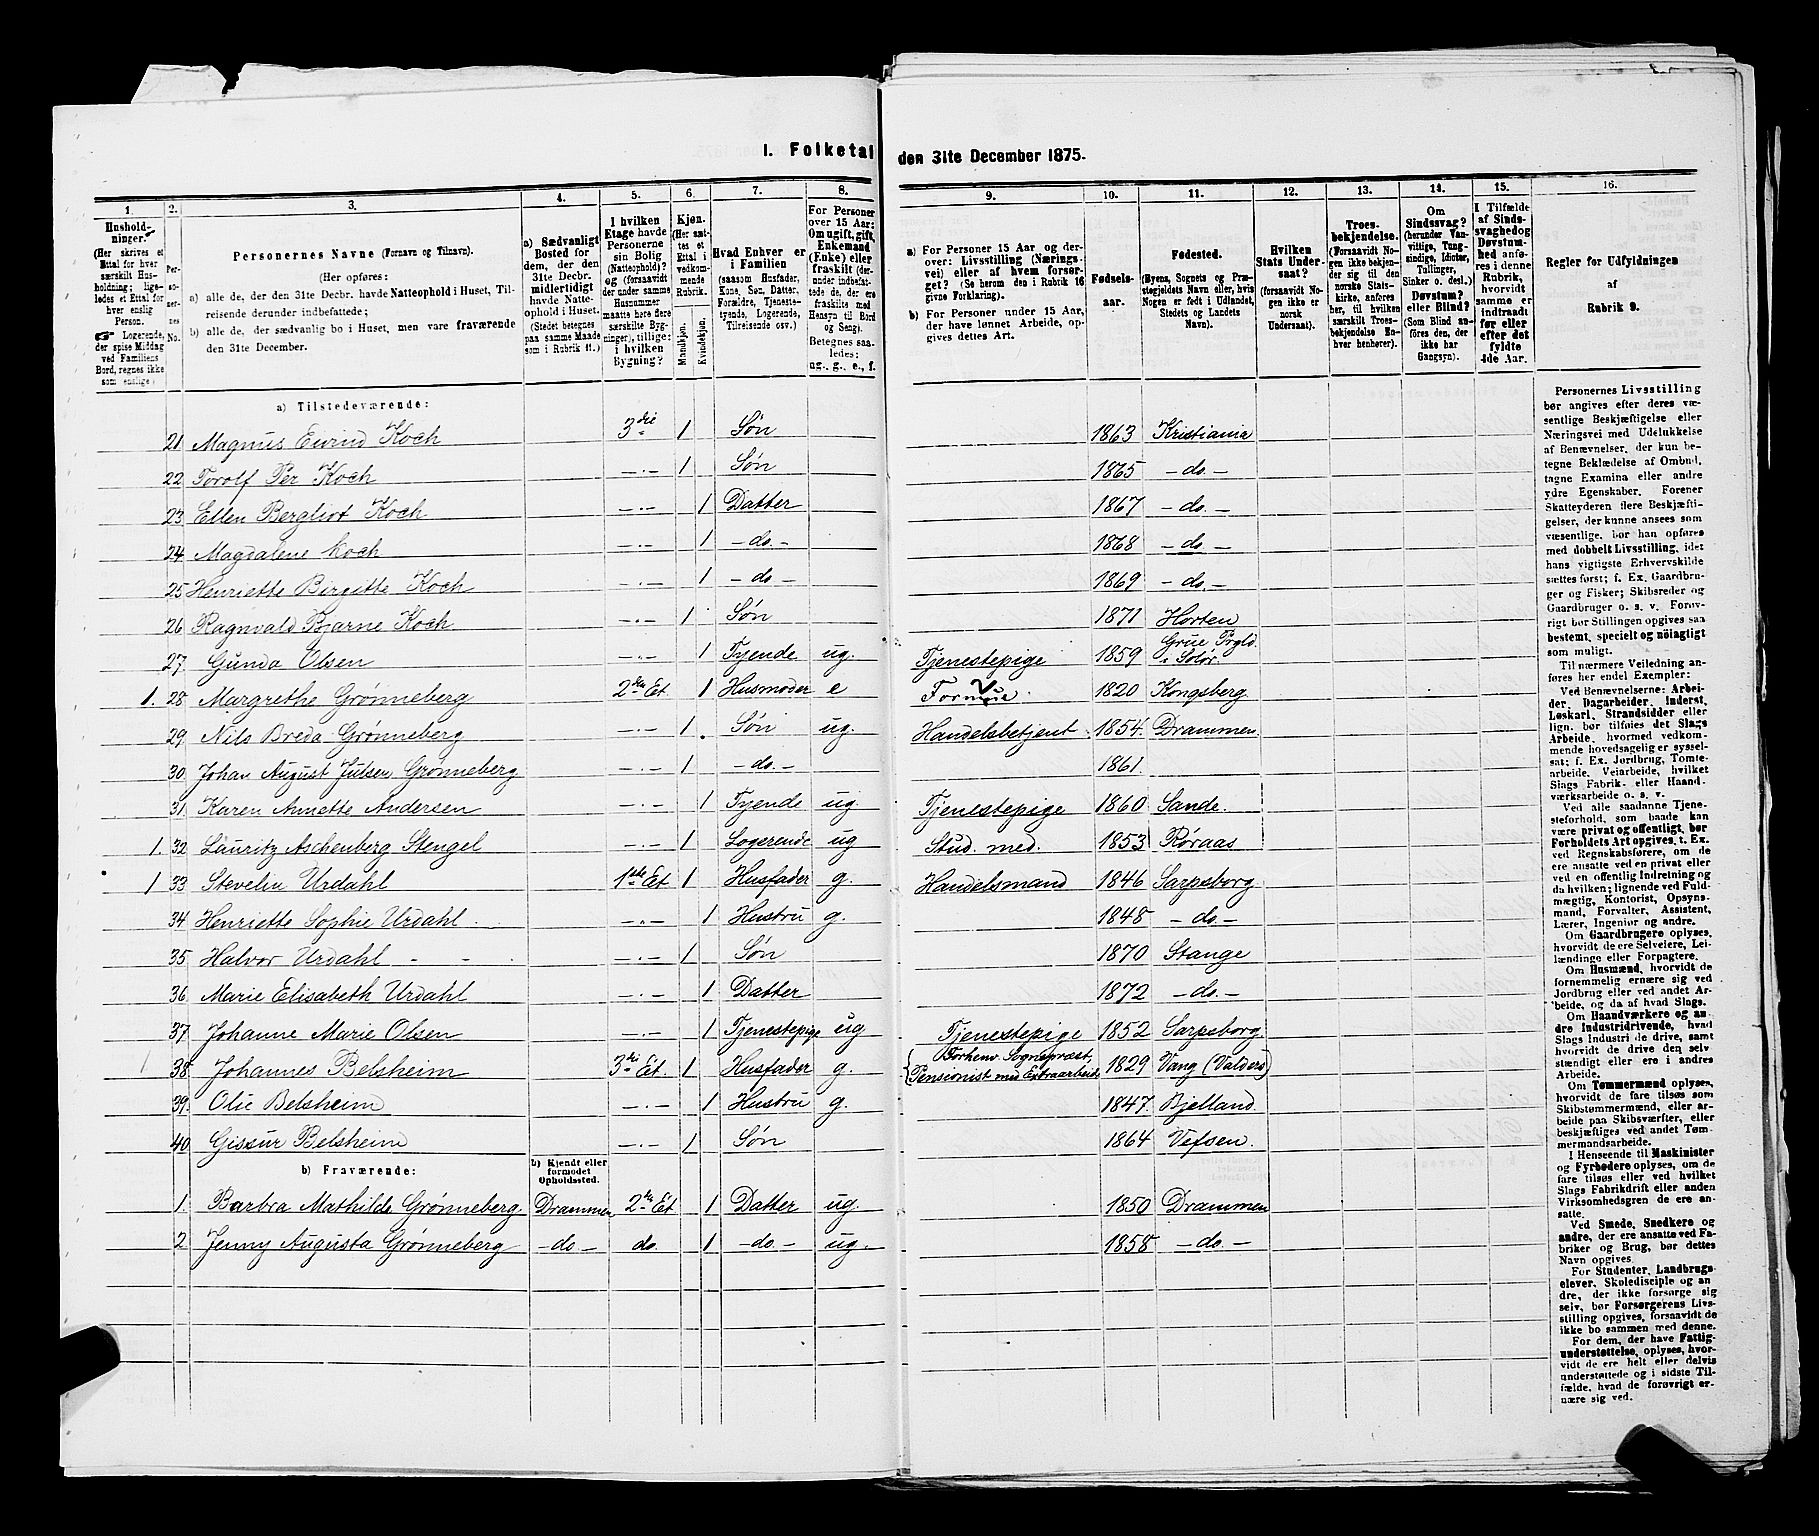 I. Folketal den 31te December 1875.
1. 2. 3. 4. 5. 6. 7. 8. 9. 10. 11. 12. 13. 14. 15. 16.
Husholdninger. (Her skrives et Ettal for hver særskilt Husholdning; ligeledes et Ettal for hver enslig Person. ☞ Logerende, der spise Middag ved Familiens Bord, regnes ikke som enslige.)
Personernes No.
Personernes Navne (Fornavn og Tilnavn).
(Her opføres:
a) alle de, der den 31te Decbr. havde Natteophold i Huset, Tilreisende derunder indbefattede;
b) alle de, der sædvanlig bo i Huset, men vare fraværende den 31te December.
a) Sædvanligt Bosted for dem, der den 31te Decbr. midlertidigt havde Natteophold i Huset. (Stedet betegnes paa samme Maade som i Rubrik 11.)
I hvilken Etage havde Personerne sin Bolig (Natteophold)? og (forsaavidt der under samme Husnummer maatte høre flere særskilte Bygninger), tillige: i hvilken Bygning?
Kjøn. (Her sættes et Ettal i vedkommende Rubrik. Mandkjøn. Kvindekjøn.
Hvad Enhver er i Familien (saasom Husfader, Kone, Søn, Datter, Forældre, Tjenestetyende, Logerende, Tilreisende osv.)
For Personer over 15 Aar: Om ugift, gift, Enkemand (Enke) eller fraskilt (derunder indbefattede de, der ere fraskilte med Hensyn til Bord og Seng). Betegnes saaledes: ug., g., e., f.
a) For Personer 15 Aar og derover: Livsstilling (Næringsvei) eller af hvem forsørget? (Se herom den i Rubrik 16 givne Forklaring).
b) For Personer under 15 Aar, der have lønnet Arbeide, opgives dettes Art.
Fødselsaar.
Fødested. (Byens, Sognets og Præstegjeldets Navn eller, hvis Nogen er født i Udlandet, Stedets og Landets Navn).
Hvilken Stats Undersaat? (forsaavidt Nogen ikke er norsk Undersaat).
Troesbekjendelse. (Forsaavidt Nogen ikke bekjender sig til den norske Statskirke, anføres her, til hvilken særskilt Troesbekjendelse Enhver henhører).
Om Sindssvag? (herunder Vanvittige, Tungsindige, Idioter, Tullinger, Sinker o. desl.) Døvstum? eller Blind? (Som Blind anføres den, der ikke har Gangsyn).
I Tilfælde af Sindssvaghed og Døvstumhed anføres i denne Rubrik, hvorvidt samme er indtraadt før eller efter det fyldte 4de Aar.
Regler for Udfyldningen af Rubrik 9.
a) Tilstedeværende:
21 Magnus Eivind Koch 3die 1 Søn 1863 Kristiania
22 Torolf Per Koch —.— 1 Søn 1865 —do.—
23 Ellen Bergliot Koch —.— 1 Datter 1867 —do.—
24 Magdalene Koch —.— 1 —do.— 1868 —do.—
25 Henriette Birgitte Koch —.— 1 —do— 1869 —do.—
26 Ragnvald Bjarne Koch —.— 1 Søn 1871 Horten
27 Gunda Olsen —.— 1 Tyende ug. Tjenestepige 1859 Grue Prgld i Solør
1. 28 Margrethe Grønneberg 2den Et 1 Husmoder e Formue 1820 Kongsberg
29 Nils Breda Grønneberg —.— 1 Søn ug. Handelsbetjent 1854 Drammen
30 Johan August Julsen Grønneberg —.— 1 —do.— 1861
31 Karen Annette Andersen —.— 1 Tyende ug. Tjenestepige 1860 Sande.
1. 32 Lauritz Aschenberg Stengel —.— 1 Logerende ug Stud. med. 1853 Røraas
1 33 Stevelin Urdahl 1ste Et 1 Husfader g. Handelsmand 1846 Sarpsborg
34 Henriette Sophie Urdahl —.— 1 Hustru g. 1848 —do—
35 Halvor Urdahl —.— 1 Søn 1870 Stange
36 Marie Elisabeth Urdahl —.— 1 Datter 1872 —do.—
37 Johanne Marie Olsen —.— 1 Tjenestepige ug Tjenestepige 1852 Sarpsborg
1 38 Johannes Belsheim 3die Et. 1 Husfader g. Forhenv. Sognepræst, Pensionist med Extraarbeide 1829 Vang (Valders)
39. Olie Belsheim —.— 1 Hustru g. 1847 Bjelland
40 Gissur Belsheim —.— 1 Søn 1864 Vefsen.
b) Fraværende:
b) Kjendt eller formodet Opholdssted.
1. Barbra Mathilde Grønneberg Drammen 2den Et 1 Datter ug. 1850 Drammen
2 Jenny Augusta Grønneberg —do— do. 1 —do.— ug. 1858 —do.—
Personernes Livsstilling
bør angives efter deres væ-
sentlige Beskjæftigelse eller
Næringsvei med Udelukkelse
af Benævnelser, der kun be-
tegne Beklædelse af Ombud,
tagne Examina eller andre
ydre Egenskaber. Forener
Skatteyderen flere Beskjæfti-
gelser, der kunne ansees som
væsentlige, bør han opføres
med dobbelt Livsstilling, idet
hans vigtigste Erhvervskilde
sættes først; f. Ex. Gaardbru-
ger og Fisker; Skibsreder og
Gaardbruger o. s. v. Forøv-
rigt bør Stillingen opgives saa
bestemt, specielt og nöiagtigt
som muligt.
Til nærmere Veiledning an-
føres her endel Exempler:
Ved Benævnelserne: Arbei-
der, Dagarbeider, Inderst,
Løskarl, Strandsidder eller
lign. bør tilføies det Slags
Arbeide, hvormed vedkom-
mende hovedsagelig er syssel-
sat; f. Ex. Jordbrug, Tomte-
arbeide, Veiarbeide, hvilket
Slags Fabrik- eller Haand-
værksarbeide o. s. v.
Ved alle saadanne Tjene-
steforhold, som baade kan
være privat og offentligt, bør
Forholdets Art opgives, t. Ex.
ved Regnskabsførere, om de
ere ansatte ved en privat eller
ved en offentlig Indretning og
da hvilken; lignende ved Fuld-
mægtig, Kontorist, Opsyns-
mand, Forvalter, Assistent,
Lærer, Ingeniør og andre.
Om Gaardbrugere oplyses,
hvorvidt de ere Selveiere, Lei-
lændinge eller Forpagtere.
Om Husmænd, hvorvidt de
fornemmelig ernære sig ved
Jordbrug eller ved andet Ar-
beide, og da af hvad Slags.
Om Haandværkere og an-
dre Industridrivende, hvad
Slags Industri de drive, samt
hvorvidt de drive den selv-
stændigt eller ere i andres
Arbeide.
Om Tømmermænd oplyses,
hvorvidt de fare tilsøs som
Skibstømmermænd, eller ar-
beide paa Skibsværfter, eller
beskjæftiges ved andet Tøm-
mermandsarbeide.
I Henseende til Maskinister
og Fyrbødere oplyses, om de
fare tilsøs eller ved hvilket
Slags Fabrikdrift eller anden
Virksomhedsgren de ere an-
satte.
Ved Smede, Snedkere og
andre, der ere ansatte ved Fa-
briker og Brug, bør dettes
Navn opgives.
For Studenter, Landbrugs-
elever, Skoledisciple og an-
dre, der ikke forsørge sig
selv, bør Forsørgerens Livs-
stilling opgives, forsaavidt de
ikke bo sammen med denne.
For dem, der have Fattig-
understøttelse, oplyses, hvor-
vidt de ere helt eller delvis
understøttede og i sidste Til-
fælde, hvad de forøvrigt er-
nære sig ved.